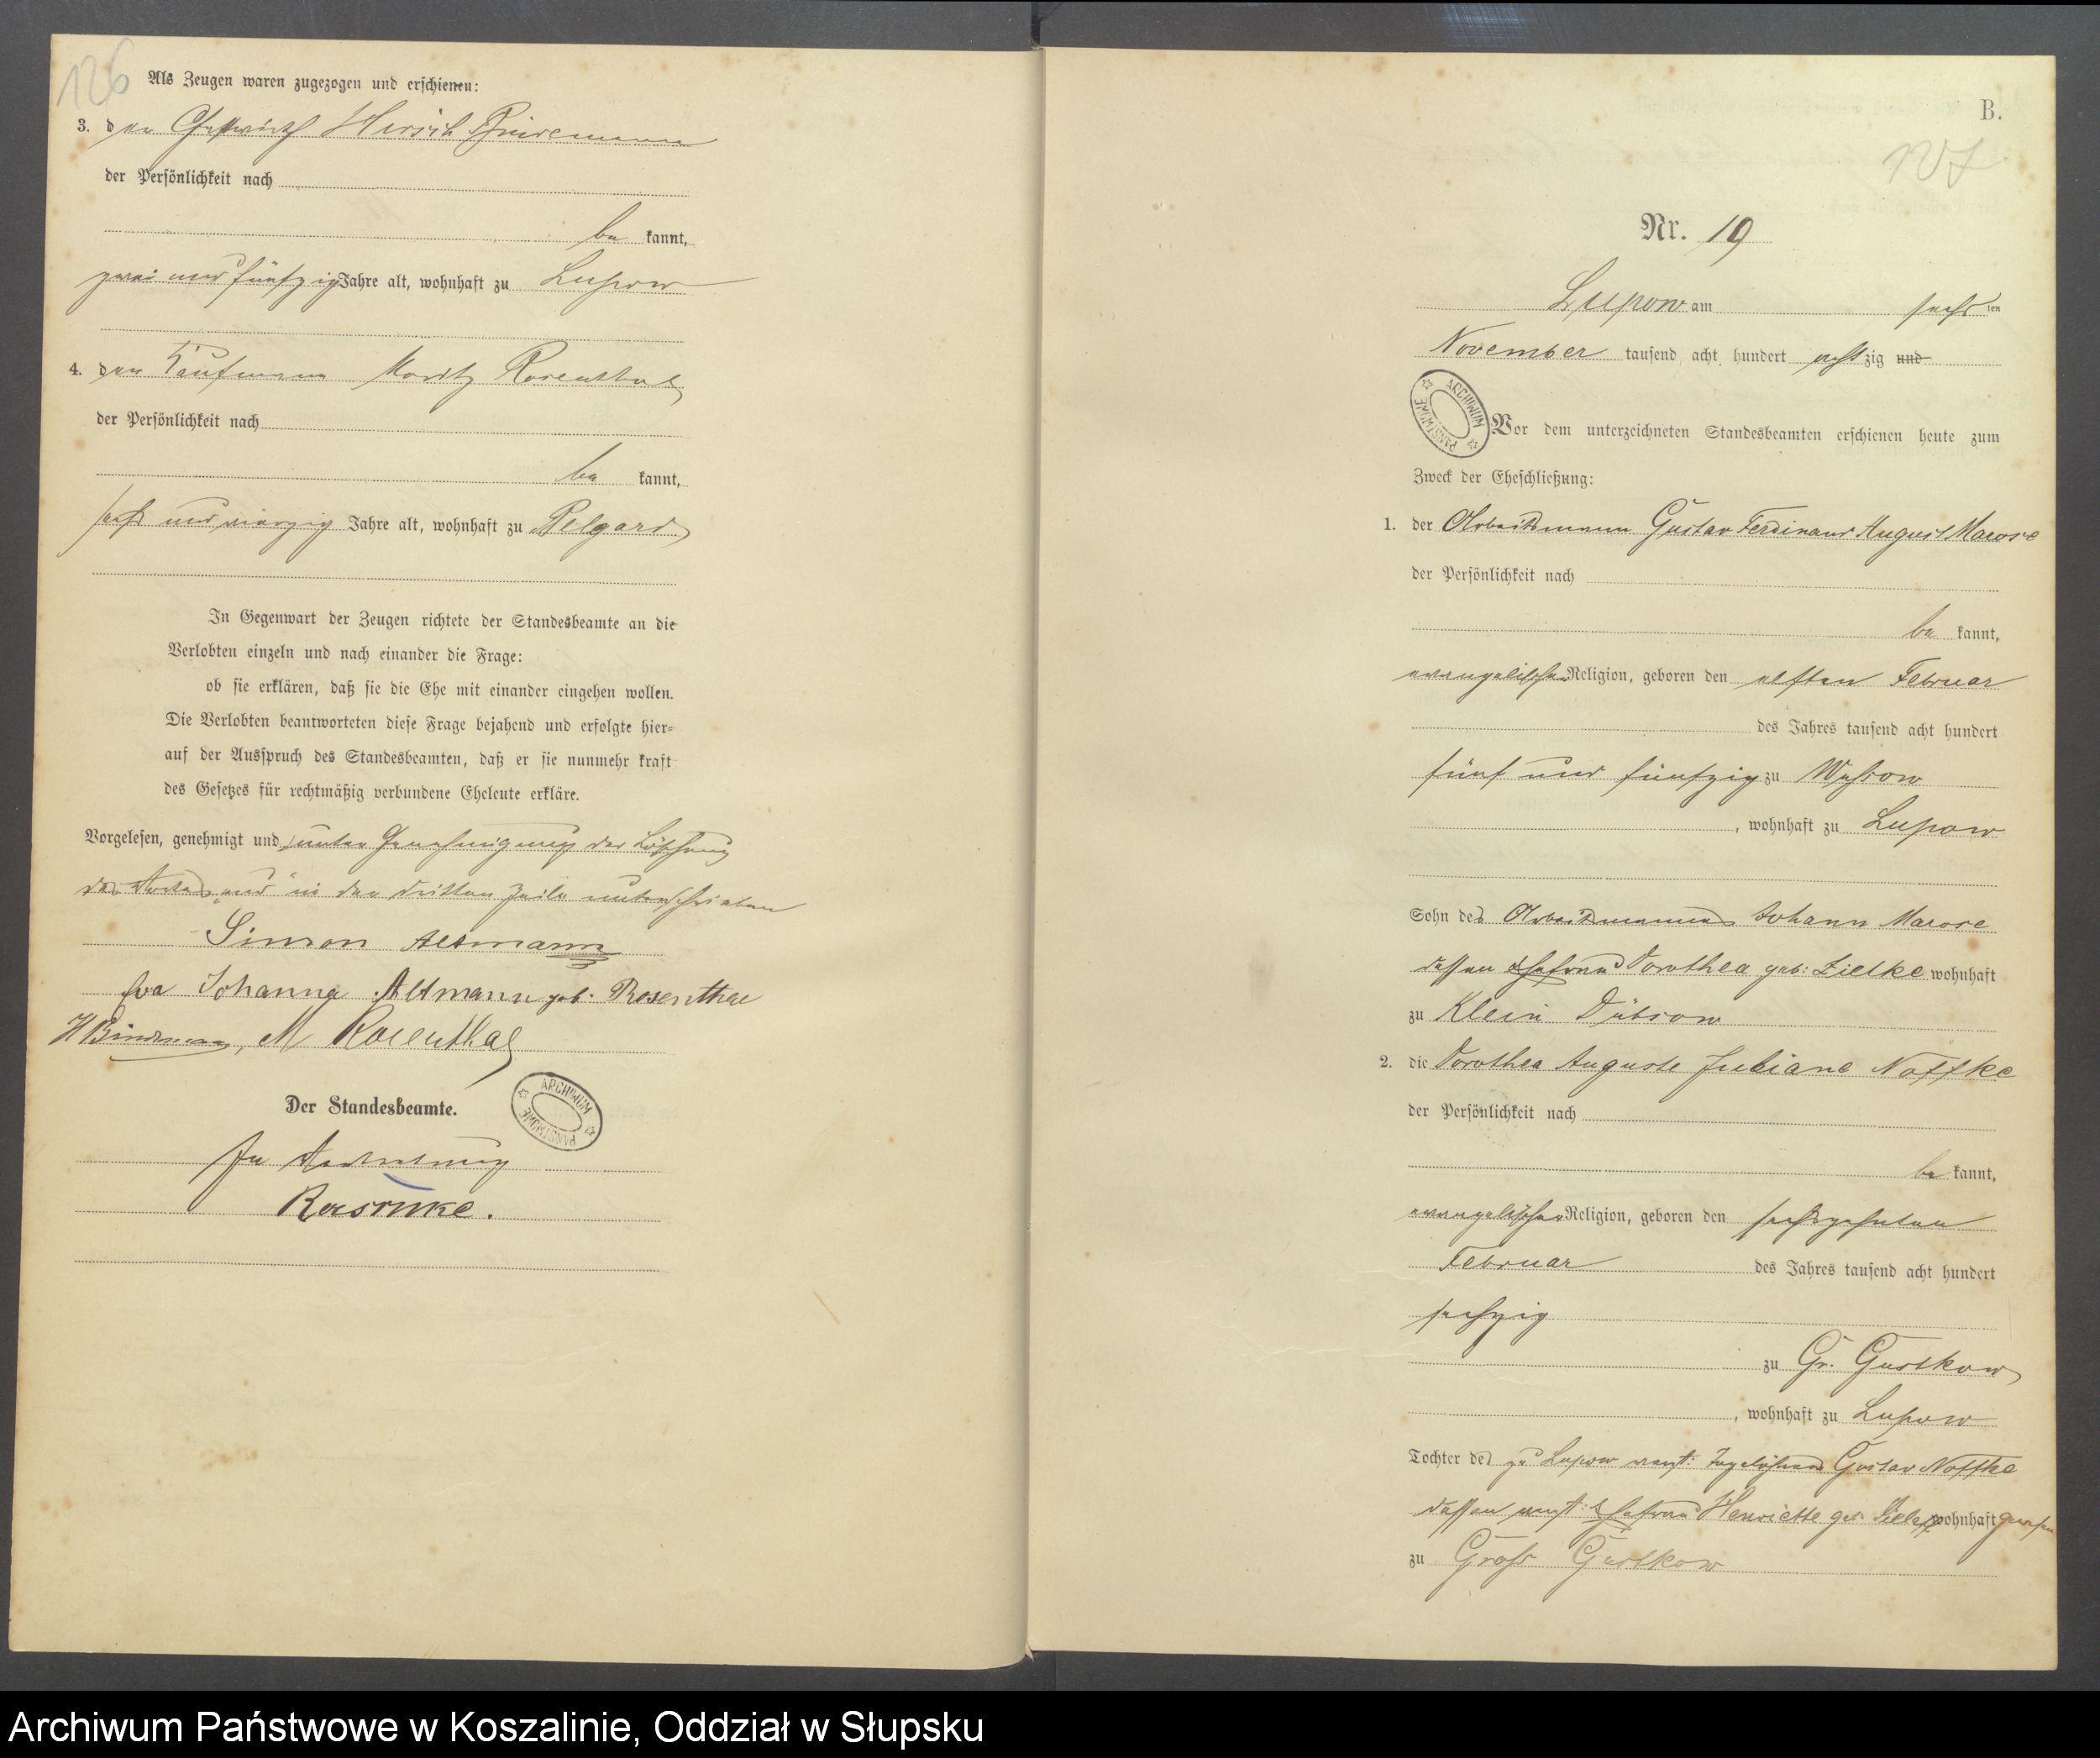 126
Als Zeugen waren zugezogen und erschienen:
3. der Gastwirth Hirsch Bindemann
der Persönlichkeit nach
be kannt,
zwei und fünfzig Jahre alt, wohnhaft zu Lupow
4. der Kaufmann Moritz Rosenthal
der Persönlichkeit nach
be kannt,
sechs und vierzig Jahre alt, wohnhaft zu Belgard
In Gegenwart der Zeugen richtete der Standesbeamte an die
Verlobten einzeln und nach einander die Frage:
ob sie erklären, daß sie die Ehe mit einander eingehen wollen.
Die Verlobten beantworteten diese Frage bejahend und erfolgte hier-
auf der Ausspruch des Standesbeamten, daß er sie nunmehr kraft
des Gesetzes für rechtmäßig verbundene Eheleute erkläre.
Vorgelesen, genehmigt und unter Genehmigung der Löschung
des Wortes „und" in der dritten Zeile unterschrieben
Simon Altmann
Johanna Altmann geb. Rosenthal
H Bindemann, M Rosenthal
Der Standesbeamte.
In Vertretung
ARCHIWUM PAŃSTWOWE
B.
127
Nr. 19
Lupow am sechs ten
November tausend acht hundert acht zig und
ARCHIWUM PAŃSTWOWE
Vor dem unterzeichneten Standesbeamten erschienen heute zum
Zweck der Eheschließung:
1. der Arbeitsmann Gustav Ferdinand August Marose
der Persönlichkeit nach
be kannt,
evangelischer Religion, geboren den elften Februar
des Jahres tausend acht hundert
fünf und fünfzig zu Wussow
, wohnhaft zu Lupow
Sohn des Arbeitsmannes Johann Marose
dessen Ehefrau Dorothea geb: Zielke wohnhaft
zu Klein Dübsow
2. die Dorothea Auguste Juliane Noffke
der Persönlichkeit nach
be kannt,
evangelischer Religion, geboren den sechszehnten
Februar des Jahres tausend acht hundert
sechzig
zu Gr. Gustkow
, wohnhaft zu Lupow
Tochter des zu Lupow verst: Tagelöhners Gustav Noffke
dessen verst: Ehefrau Henriette geb. wohnhaft gewesen
zu Groß Gustkow
Archiwum Państwowe w Koszalinie, Oddział w Słupsku